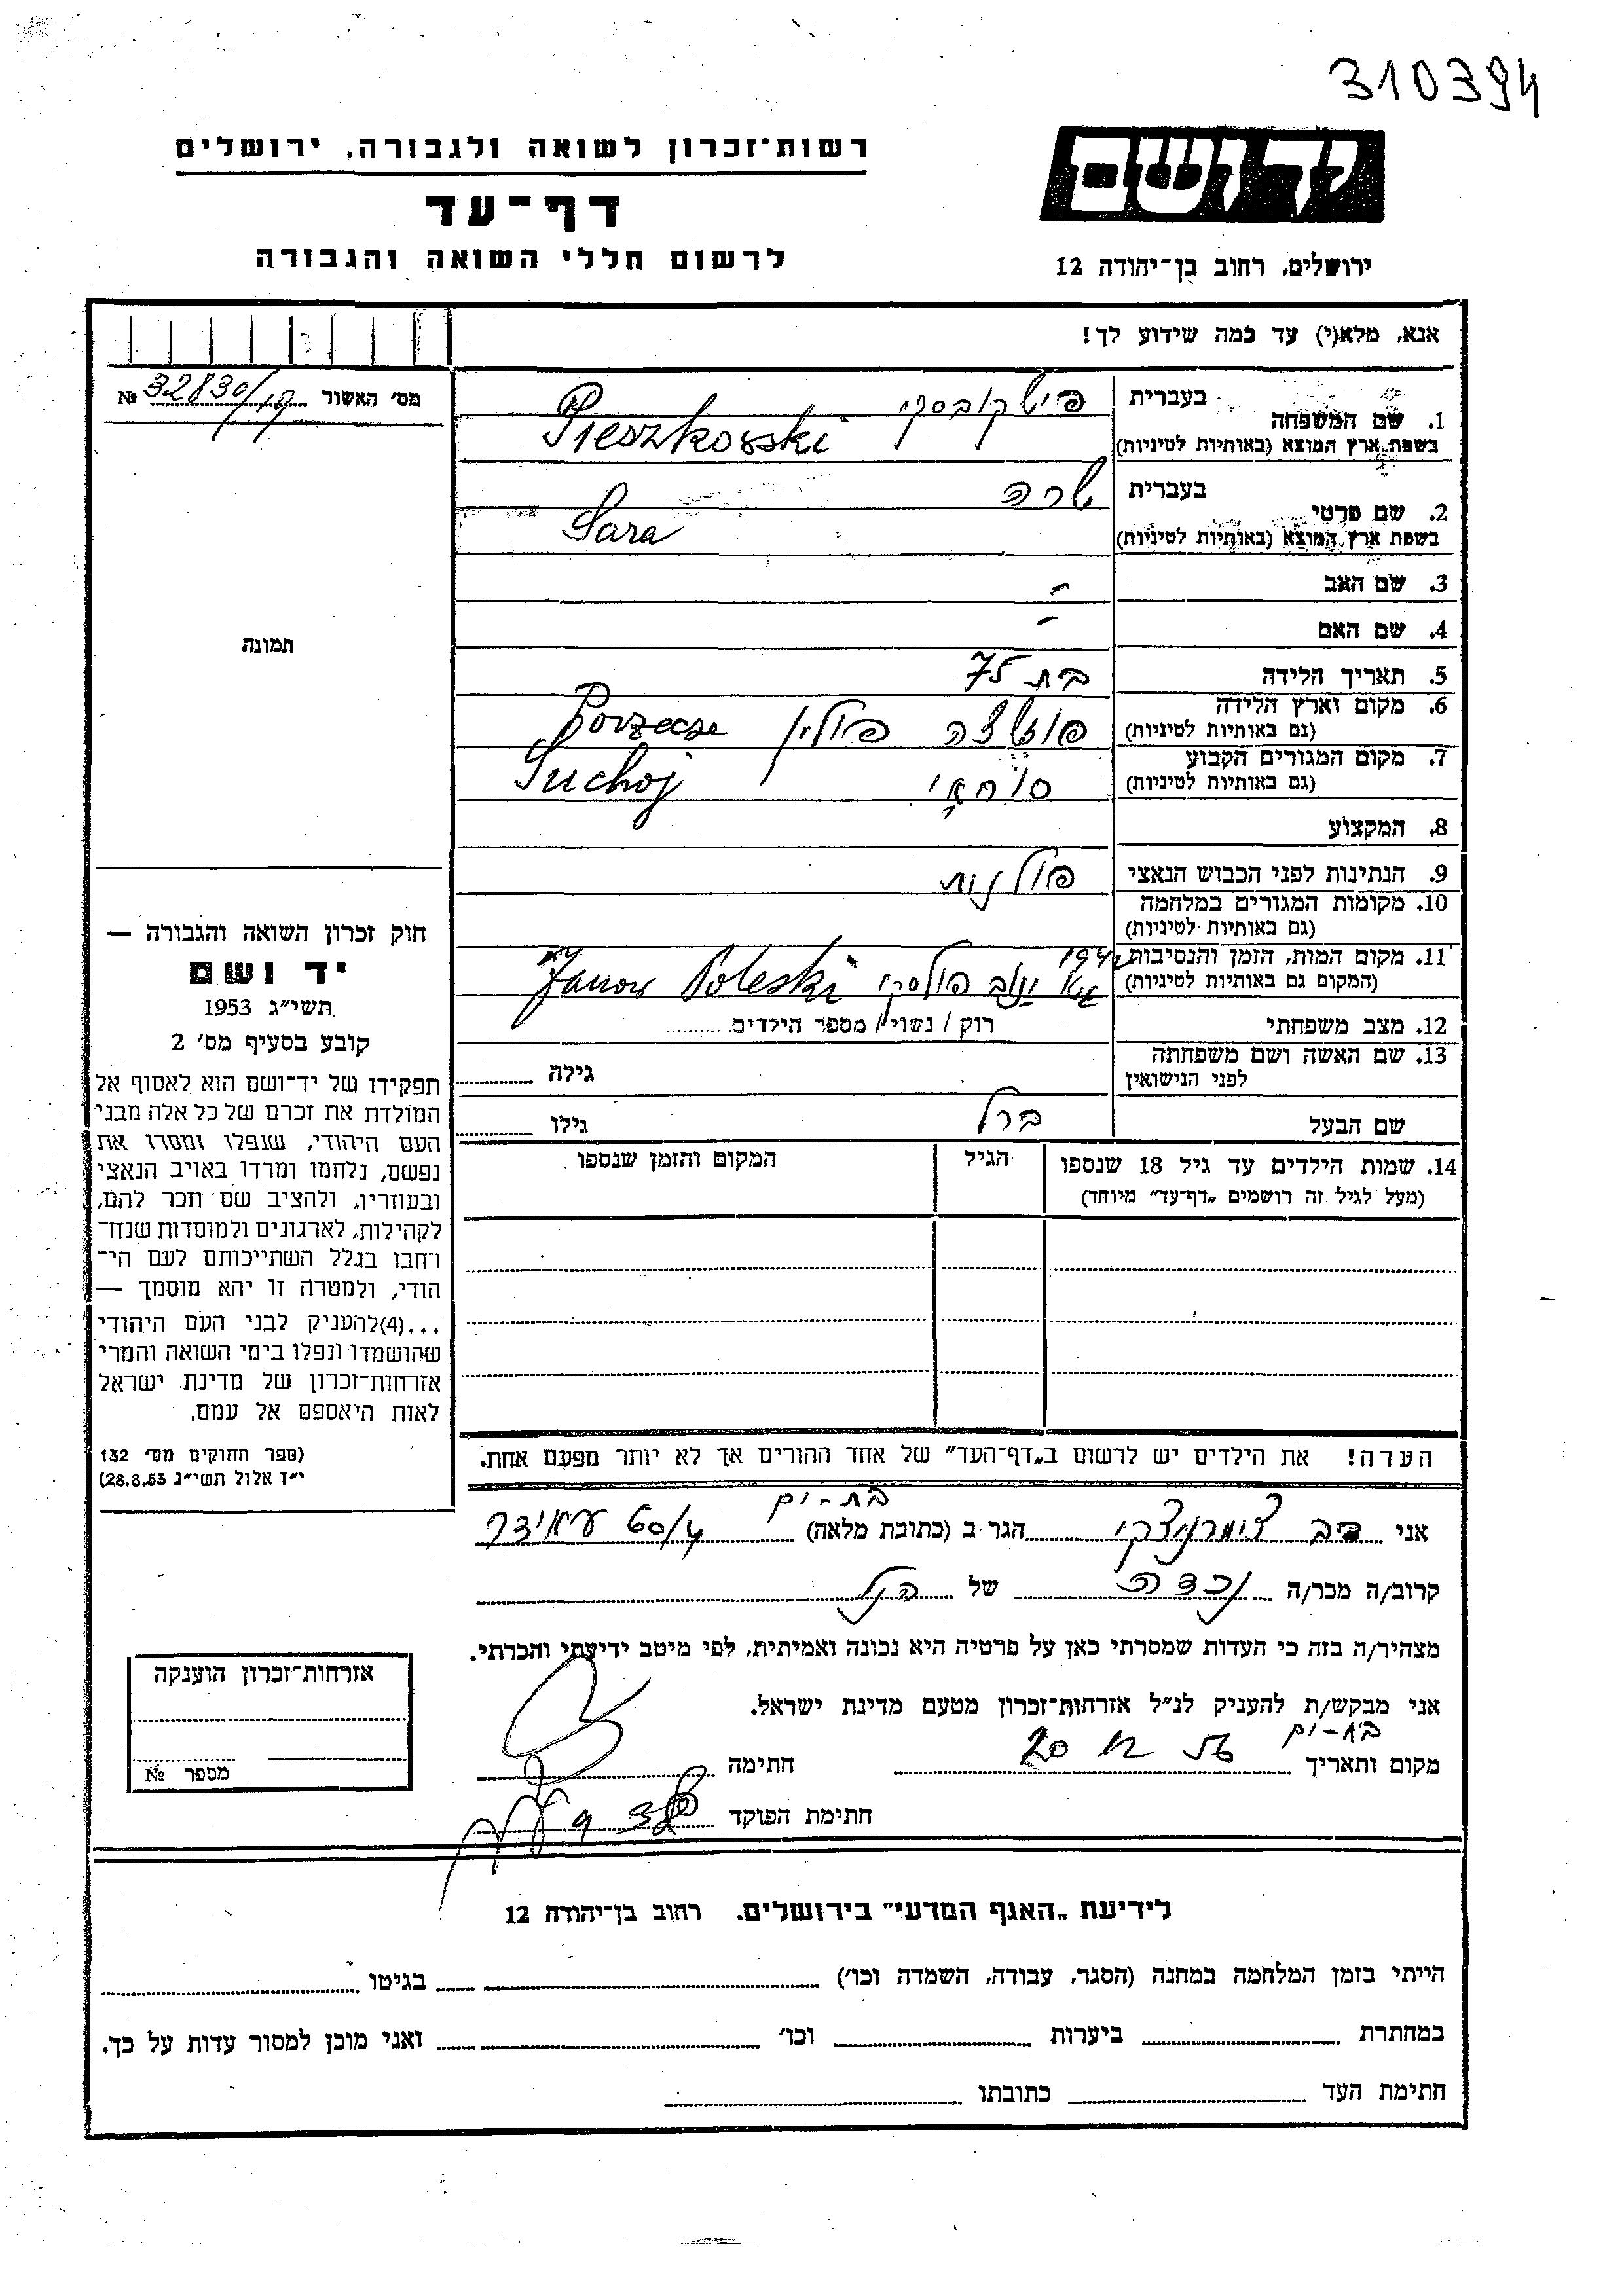 310394
יד ושם
רשות־זכרון לשואה ולגבורה, ירושלים
דף־עד
לרשום חללי השואה והגבורה
ירושלים, רחוב בן־יהודה 12
אנא, מלא(י) עד כמה שידוע לך!
מס' האשור № 32830/19
1. שם המשפחה
בעברית פישקובסקי
בשפת ארץ המוצא (באותיות לטיניות) Pieszkovski
2. שם פרטי
בעברית שרה
בשפת ארץ המוצא (באותיות לטיניות) Sara
3. שם האב -
4. שם האם -
תמונה
5. תאריך הלידה בת 75
6. מקום וארץ הלידה
(גם באותיות לטיניות) פולין
7. מקום המגורים הקבוע
(גם באותיות לטיניות) Suchoj
8. המקצוע
9. הנתינות לפני הכבוש הנאצי פולנית
10. מקומות המגורים במלחמה
(גם באותיות לטיניות)
11. מקום המות, הזמן והנסיבות
(המקום גם באותיות לטיניות) ינוב פולסקי Janow Poleski
12. מצב משפחתי רוק / נשוי / מספר הילדים
13. שם האשה ושם משפחתה
לפני הנישואין גילה
שם הבעל ברל גילו
14. שמות הילדים עד גיל 18 שנספו הגיל המקום והזמן שנספו
(מעל לגיל זה רושמים „דף־עד" מיוחד)
חוק זכרון השואה והגבורה —
יד ושם
תשי"ג 1953
קובע בסעיף מס' 2
תפקידו של יד־ושם הוא לאסוף אל
המולדת את זכרם של כל אלה מבני
העם היהודי, שנפלו ומסרו את
נפשם, נלחמו ומרדו באויב הנאצי
ובעוזריו, ולהציב שם וזכר להם,
לקהילות, לארגונים ולמוסדות שנח־
רחבו בגלל השתייכותם לעם הי־
הודי, ולמטרה זו יהא מוסמך —
...(4)להעניק לבני העם היהודי
שהושמדו ונפלו בימי השואה והמרי
אזרחות־זכרון של מדינת ישראל
לאות היאספם אל עמם.
(ספר החוקים מס' 132
י"ז אלול תשי"ג 28.8.53)
הערה! את הילדים יש לרשום ב„דף־העד" של אחד ההורים אך לא יותר מפעם אחת.
בת-ים
אני דב הגר ב (כתובת מלאה) 60/4
קרוב/ה מכר/ה נכדה של הנ"ל
מצהיר/ה בזה כי העדות שמסרתי כאן על פרטיה היא נכונה ואמיתית, לפי מיטב ידיעתי והכרתי.
אני מבקש/ת להעניק לנ"ל אזרחות־זכרון מטעם מדינת ישראל.
בת-ים
מקום ותאריך חתימה
חתימת הפוקד
אזרחות־זכרון הוענקה
מספר №
לידיעת „האגף המדעי" בירושלים, רחוב בן־יהודה 12
הייתי בזמן המלחמה במחנה (הסגר, עבודה, השמדה וכו') בגיטו
במחתרת ביערות וכו' ואני מוכן למסור עדות על כך.
חתימת העד כתובתו